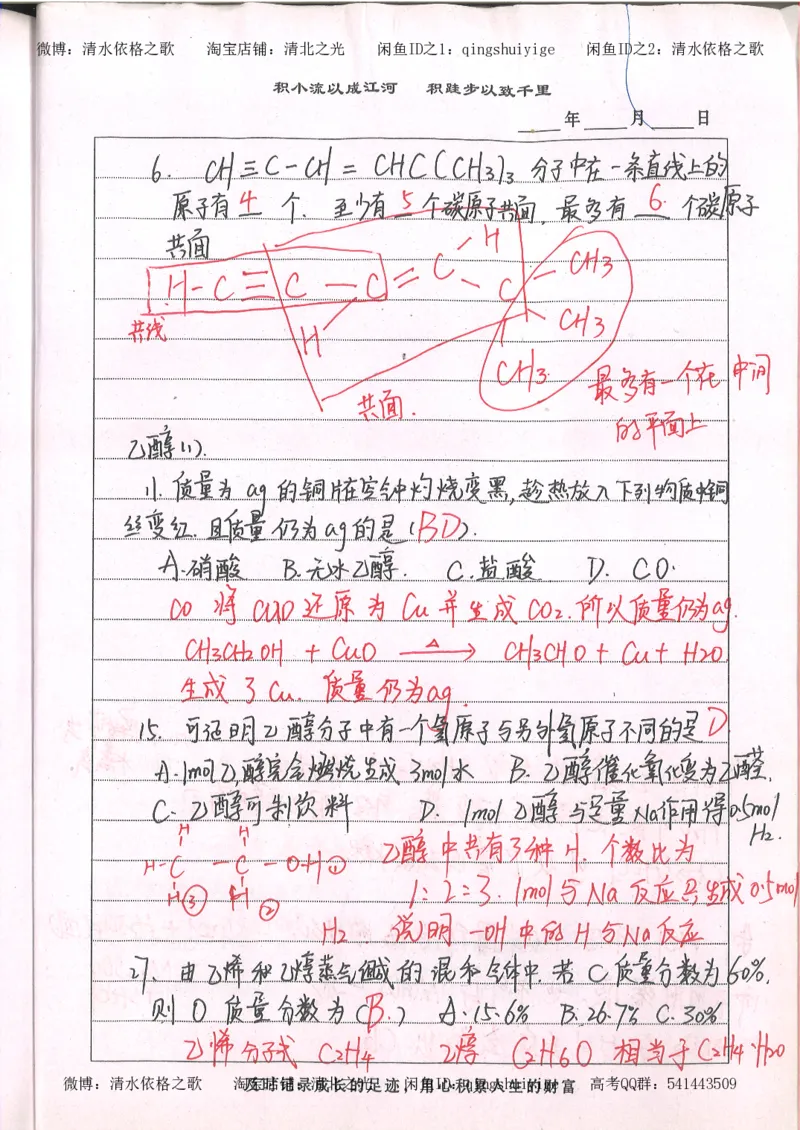 微博：清水依格之歌 淘宝店铺：清北之光 闲鱼ID之1：qingshuiyige 闲鱼ID之2：清水依格之歌
积小流以成江河 积跬步以致千里
年 月 日
6. CH≡C-CH=CHC(CH3)3 分子中在一条直线上的
原子有 4 个. 至少有 5 个碳原子共面, 最多有 6. 个碳原子
共面
H-C≡C-C=C-C
H
H
CH3
CH3
CH3
共线
共面.
最多有一个在中间
的平面上
乙醇(1).
11. 质量为ag的铜片在空气中灼烧变黑,趁热放入下列物质中铜
丝变红.且质量仍为ag的是(BD).
A.硝酸 B.无水乙醇. C.盐酸 D. CO.
CO 将 CuO 还原为 Cu 并生成 CO2.所以质量仍为ag.
CH3CH2OH + CuO —△→ CH3CHO + Cu + H2O
生成了Cu. 质量仍为ag.
15. 可证明乙醇分子中有一个氢原子与另外氢原子不同的是 D
A.1mol乙醇完全燃烧生成3mol水 B.乙醇催化氧化变为乙醛.
C.乙醇可制饮料 D. 1mol乙醇与足量Na作用得0.5mol
H2.
H H
H-C-C-O-H ①
H ③ H ②
乙醇中共有3种H.个数比为
1:2:3. 1mol与Na反应只生成0.5mol
H2. 说明-OH中的H与Na反应
27. 由乙烯和乙醇蒸气组成的混和气体中.若C质量分数为60%.
则O质量分数为(B.) A.15.6% B.26.7% C.30%
乙烯分子式 C2H4 乙醇 C2H6O 相当于C2H4·H2O
及时铺录成长的足迹，用心积累人生的财富
微博：清水依格之歌 淘宝店铺：清北之光 闲鱼ID：qingshuiyige 高考QQ群：541443509